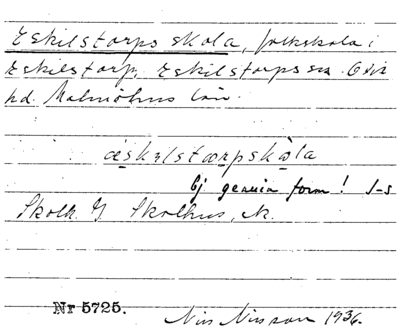 Eskilstorps skola, folkskola i
Eskilstorp, Eskilstorps sn. Oxie
hd. Malmöhus län.
æskəlstærpskåla
Ej genuin form! I-s
Skolk. Skolhus, N.
Nr 5725.
Nils Nilsson 1936.